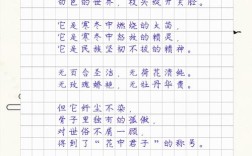 切色的世界，枝头绽开笑脸。
它是寒冬中燃烧的火焰，
它是寒冬中怒放的精灵，
它是民族坚韧不拔的精神。
无百合圣洁，无荷花清纯。
无玫瑰娇艳，无牡丹华贵。
但它纤尘不染，
骨子里独有的孤傲，
对世俗不屑一顾，
得到了“花中君子”的称号。